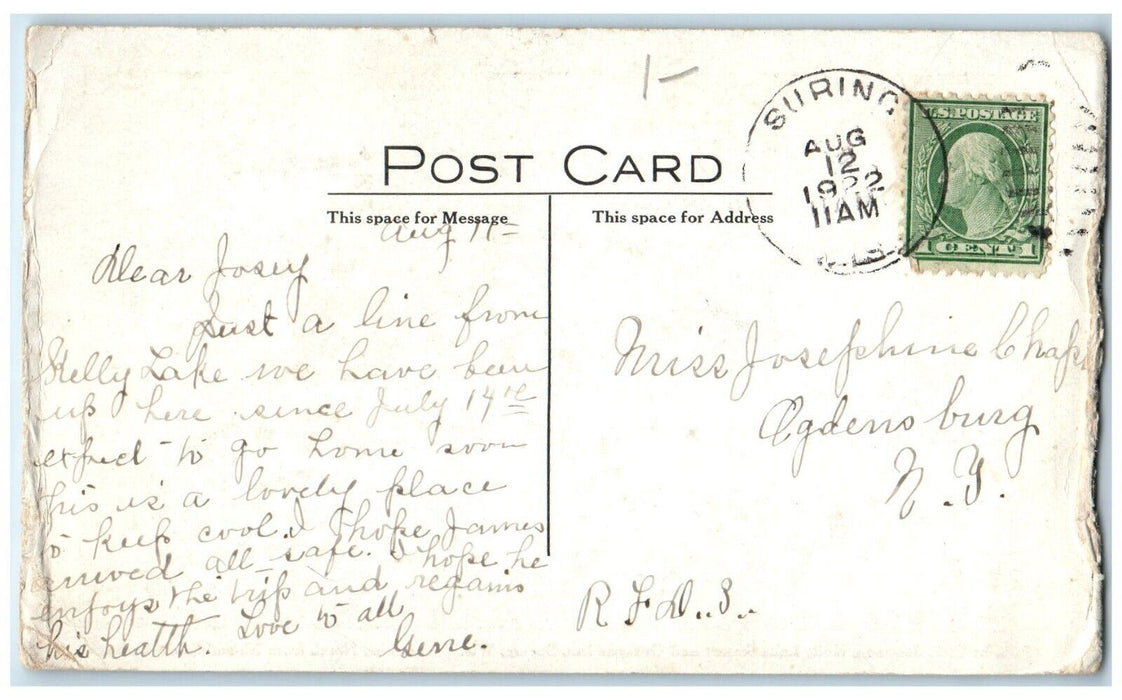 1-
SURING
AUG
12
1922
11AM
WIS
U.S.POSTAGE
1 CENT 1
POST CARD
This space for Message
This space for Address
Aug 11th
Dear Josey
Just a line from
Kelly Lake we have been
up here since July 14th
expect to go home soon
this is a lovely place
to keep cool. I hope James
arrived all safe. I hope he
enjoys the trip and regains
his health. Love to all
Gene.
Miss Josephine Chap
Ogdensburg
N.Y.
R F D. 3.